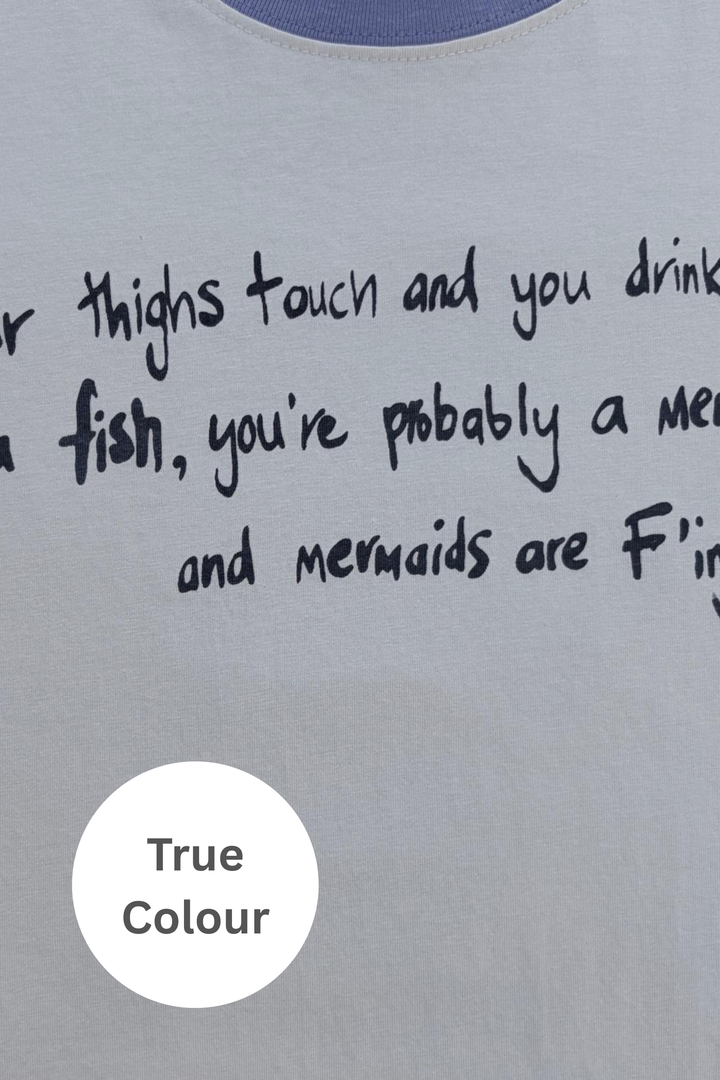 thighs touch and you drink
fish, you're probably a
and mermaids are
True
Colour